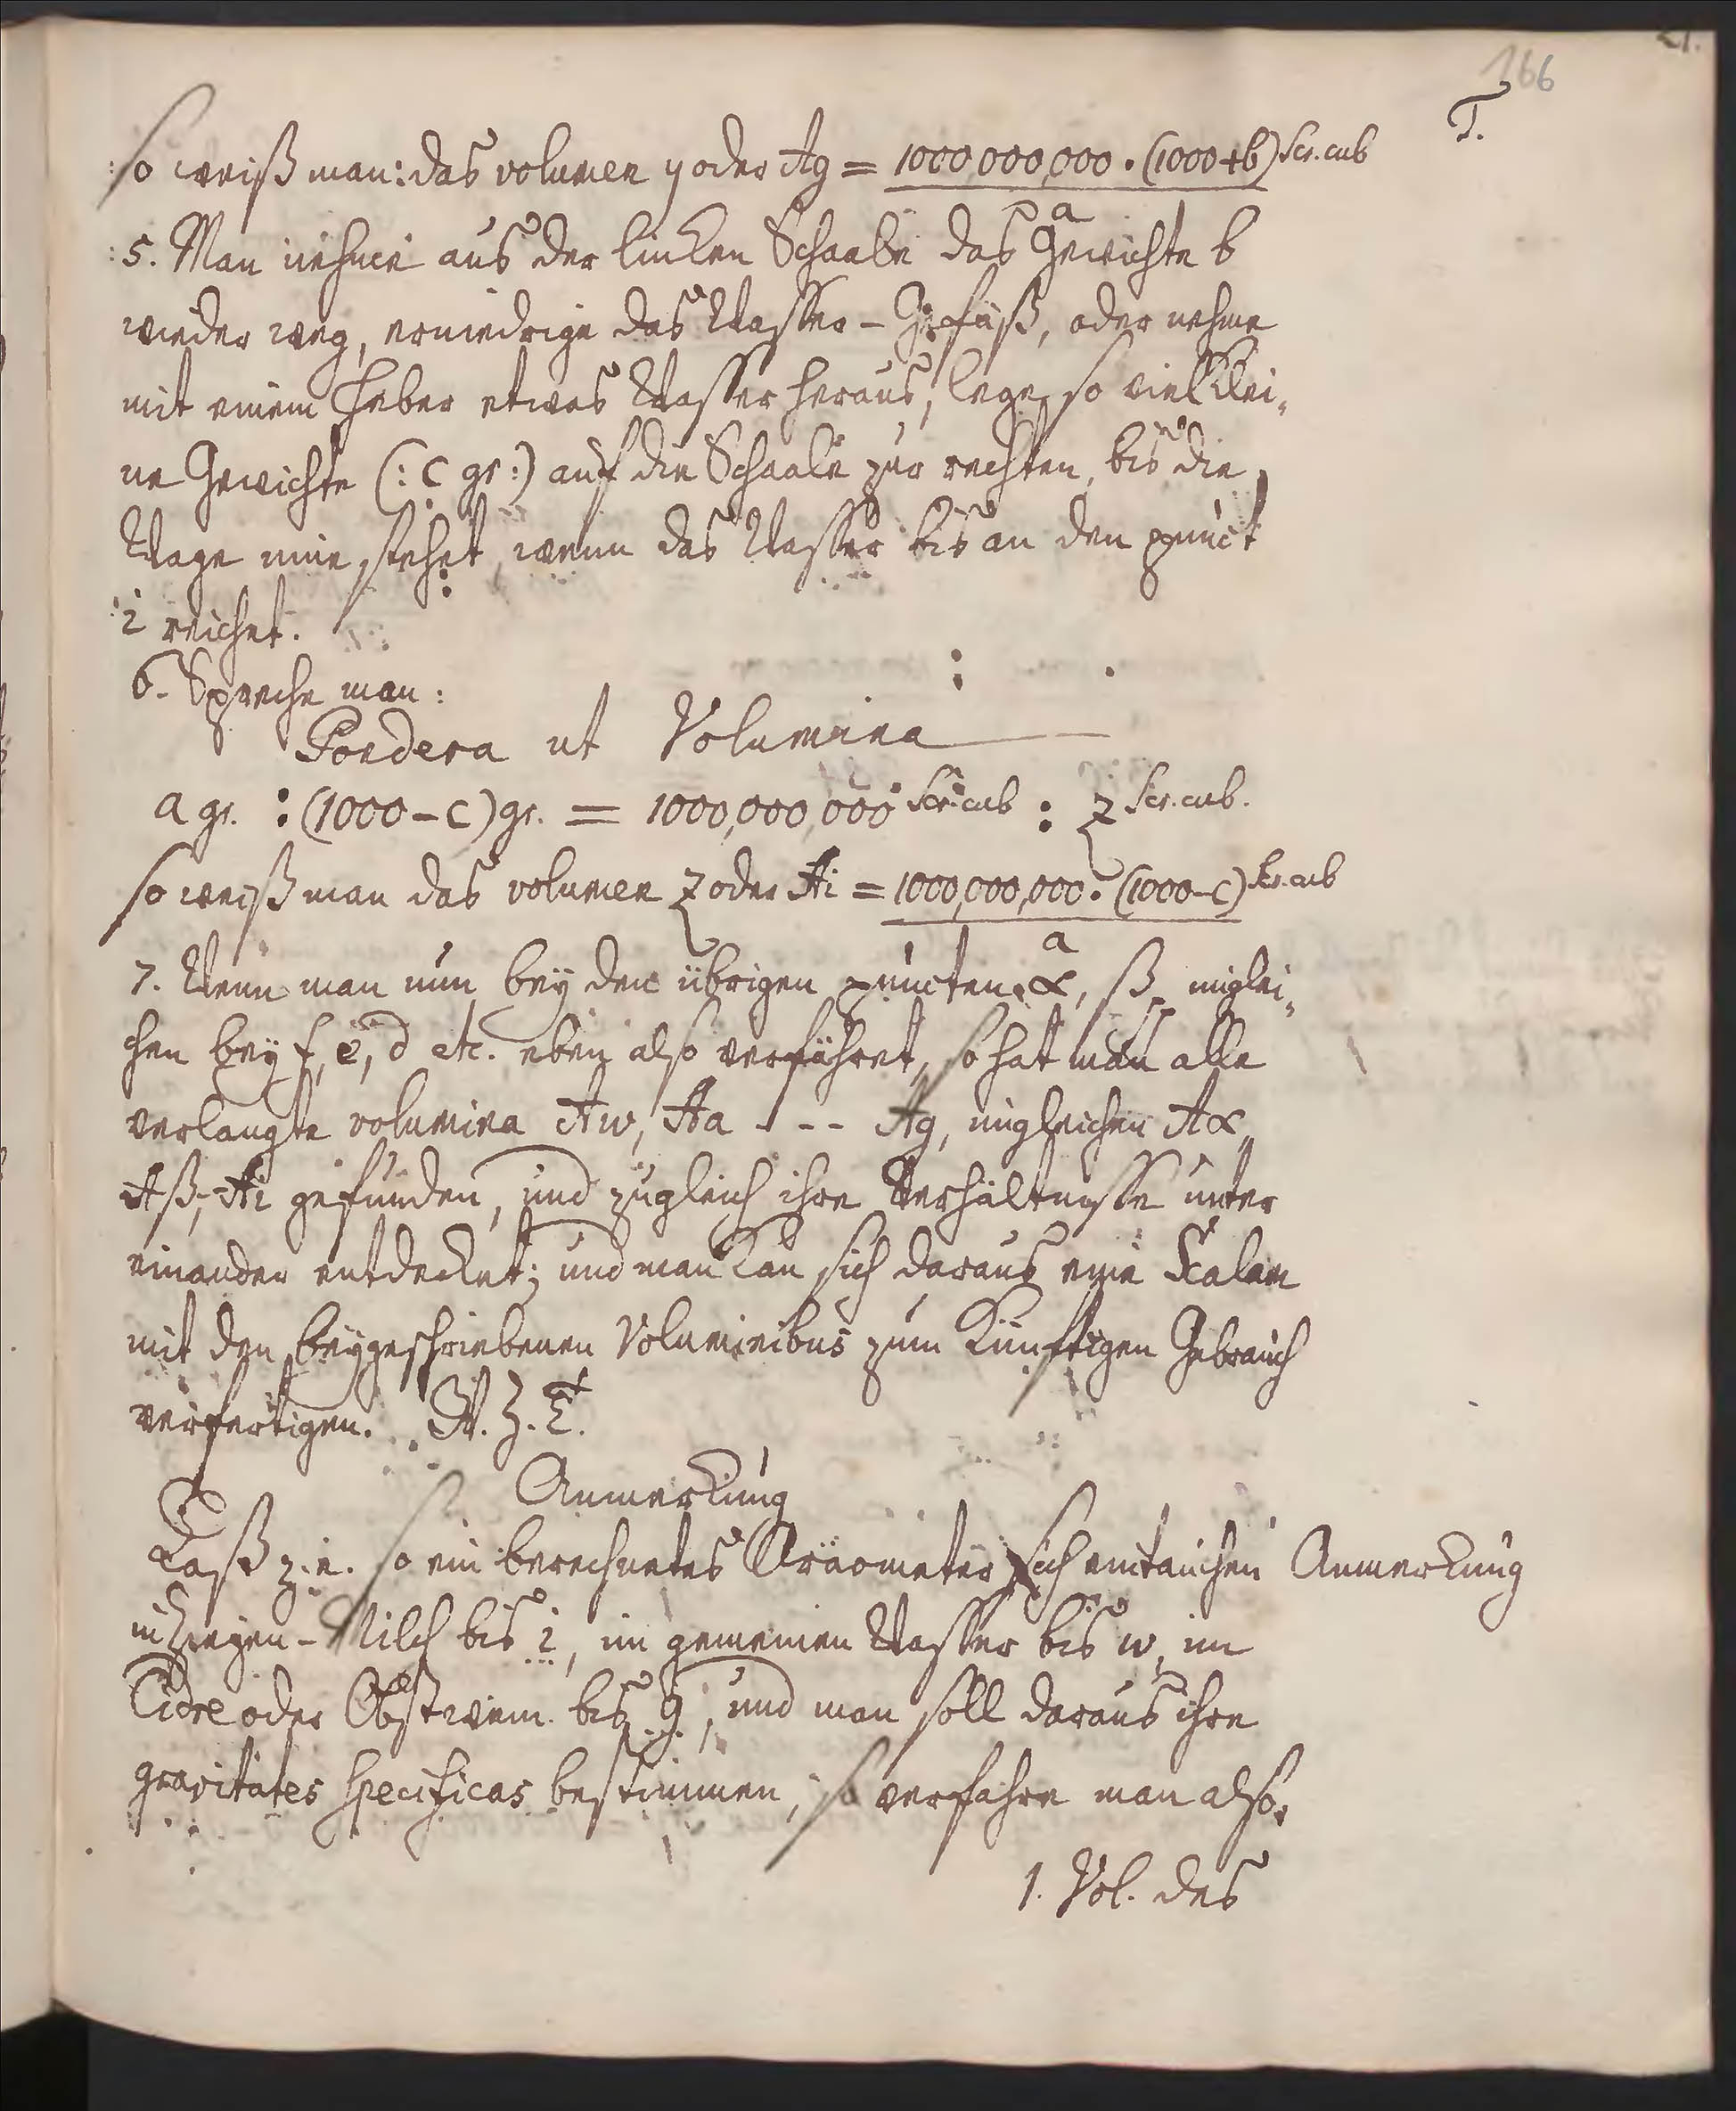 21.
166
T.
so weiß man: das volumen y oder Ag = 1000,000,000 • (1000+b) Scr. cub
a
5. Man nehme aus der lincken Schaale das Gewichte b
wieder weg, erniedrige das Wasser-Gefäß, oder nehme
mit einem Heber etwas Wasser heraus, lege so viel klei„
ne Gewichte (: c gr :) auf die Schaale zur rechten, bis die
Wage inne stehet, wenn das Wasser bis an den punct
i reichet.
6. Spreche man:
Pondera ut Volumina
a gr. : (1000-c) gr. = 1000,000,000 Scr. cub : z Scr. cub.
so weiß man das volumen z oder Ai = 1000,000,000 • (1000-c) Scr. cub
a
7. Wenn man nun bey den übrigen puncten α, ß, ingleı„
chen bey f, e, d etc. eben also verfähret, so hat man alle
verlangte volumina Aw, Aa - - - Ag, ingleichen Aα,
Aß, Ai gefunden, und zugleich ihre Verhältnisse unter
einander entdecket; und man kan sich daraus eine Scalam
mit den beygeschriebenen Voluminibus zum künftigen Gebrauch
verfertigen. W. Z. E.
Anmerkung
Laßt z. e. so ein berechnetes Aräometer sich eintauchen Anmerkung
in Ziegen-Milch bis i, im gemeinen Wasser bis w, im
Cidre oder Obstwein bis g, und man soll daraus ihre
gravitates specificas bestimmen, so verfahre man also.
1. Vol. des